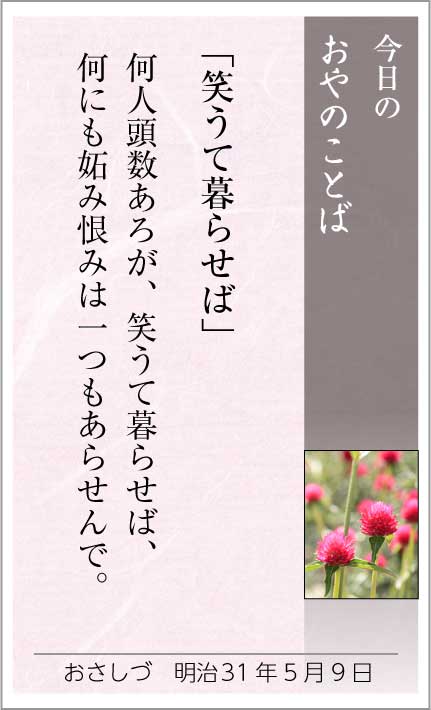 今日の
おやのことば
「笑うて暮らせば」
何人頭数あろが、笑うて暮らせば、
何にも妬み恨みは一つもあらせんで。
おさしづ　明治31年5月9日